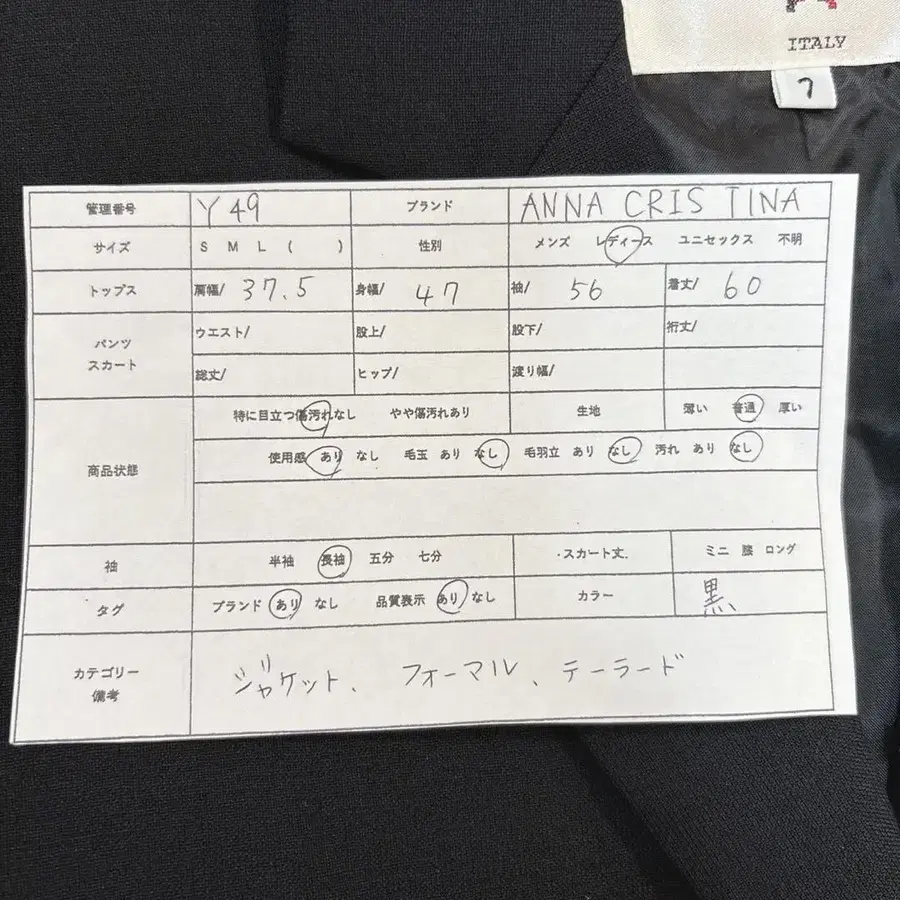 ITALY
7
管理番号 Y49 ブランド ANNA CRISTINA
サイズ S M L ( ) 性別 メンズ レディース ユニセックス 不明
トップス 肩幅/ 37.5 身幅/ 47 袖/ 56 着丈/ 60
パンツ
スカート
ウエスト/ 股上/ 股下/ 裄丈/
総丈/ ヒップ/ 渡り幅/
商品状態
特に目立つ傷汚れなし やや傷汚れあり 生地 薄い 普通 厚い
使用感 あり なし 毛玉 あり なし 毛羽立 あり なし 汚れ あり なし
袖 半袖 長袖 五分 七分 ・スカート丈. ミニ 膝 ロング
タグ ブランド あり なし 品質表示 あり なし カラー 黒
カテゴリー
備考
ジャケット、フォーマル、テーラード